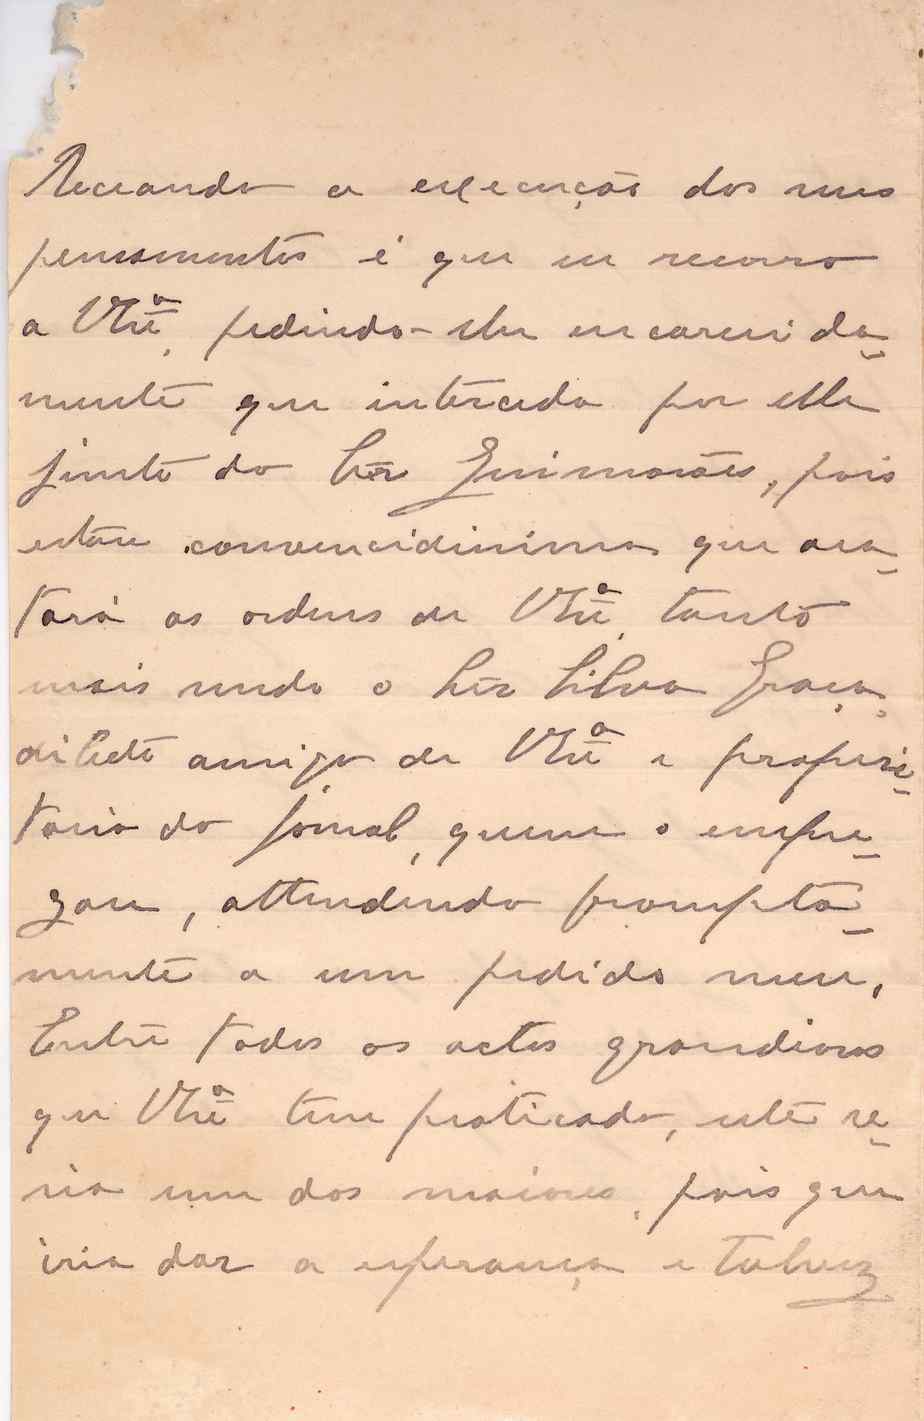 Receando a execução dos meus
pensamentos é que eu recorro
a V Exª, pedindo-lhe encarecida-
mente que interceda por elle
junto do Snr Guimarães, pois
estou convencidissima que aca-
tará as ordens de V Exª, tanto
mais sendo o Snr Silva Graça,
dilecto amigo de V Exª e proprie-
tario do Jornal, quem o empre-
gou, attendendo prompta-
mente a um pedido meu.
Entre todos os actos grandiosos
que V Exª tem praticado, este se-
ria um dos maiores, pois que
iria dar a esperança e talvez